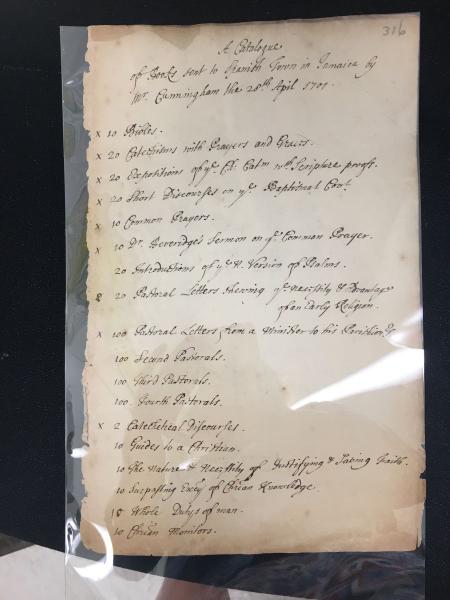 316
A Catalogue
of Books sent to Spanish Town in Jamaica by
Mr. Cunningham the 28th April 1701.
x 10 Bibles.
x 20 Catechisms with Prayers and Graces.
x 20 Expositions of ye. Ch: Catm wth. Scripture proofs.
x 20 Short Discourses on ye. Baptismal Covt.
x 10 Common Prayers.
x 10 Dr. Beveridge's Sermon on ye. Common Prayer.
20 Introductions of ye N. Version of Psalms.
20 Pastoral Letters shewing ye. necessity & Advantage
of an Early Religion.
x 100 Pastoral Letters from a Minister to his Parishionrs.
100 Second Pastorals.
100 Third Pastorals.
100 Fourth Pastorals.
x 2 Catechetical Discourses.
10 Guides to a Christian.
10 The Nature & Necessity of Justifying & Saving Faith.
10 Surpassing of Chrian Knowledge.
18 Whole Dutys of man.
10 Chrian Monitors.